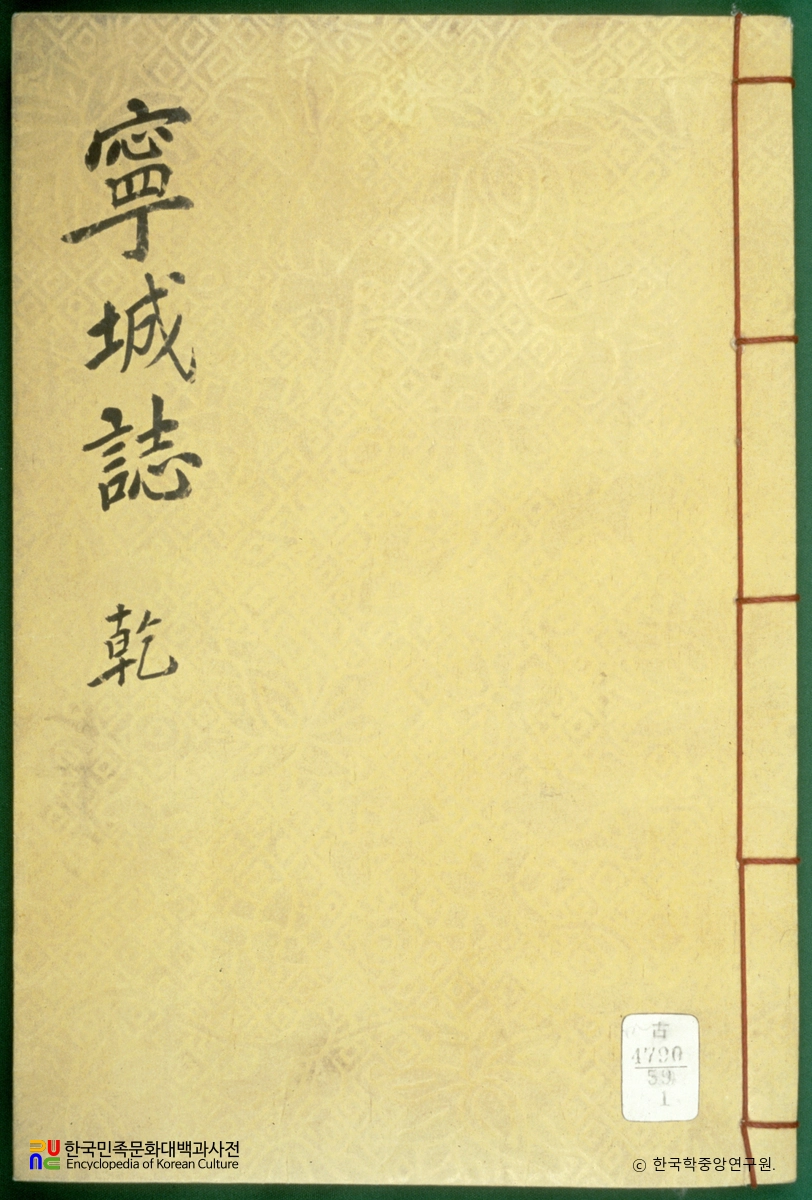 寧城誌 乾
古
4790
59
1
한국민족문화대백과사전
Encyclopedia of Korean Culture
ⓒ 한국학중앙연구원.